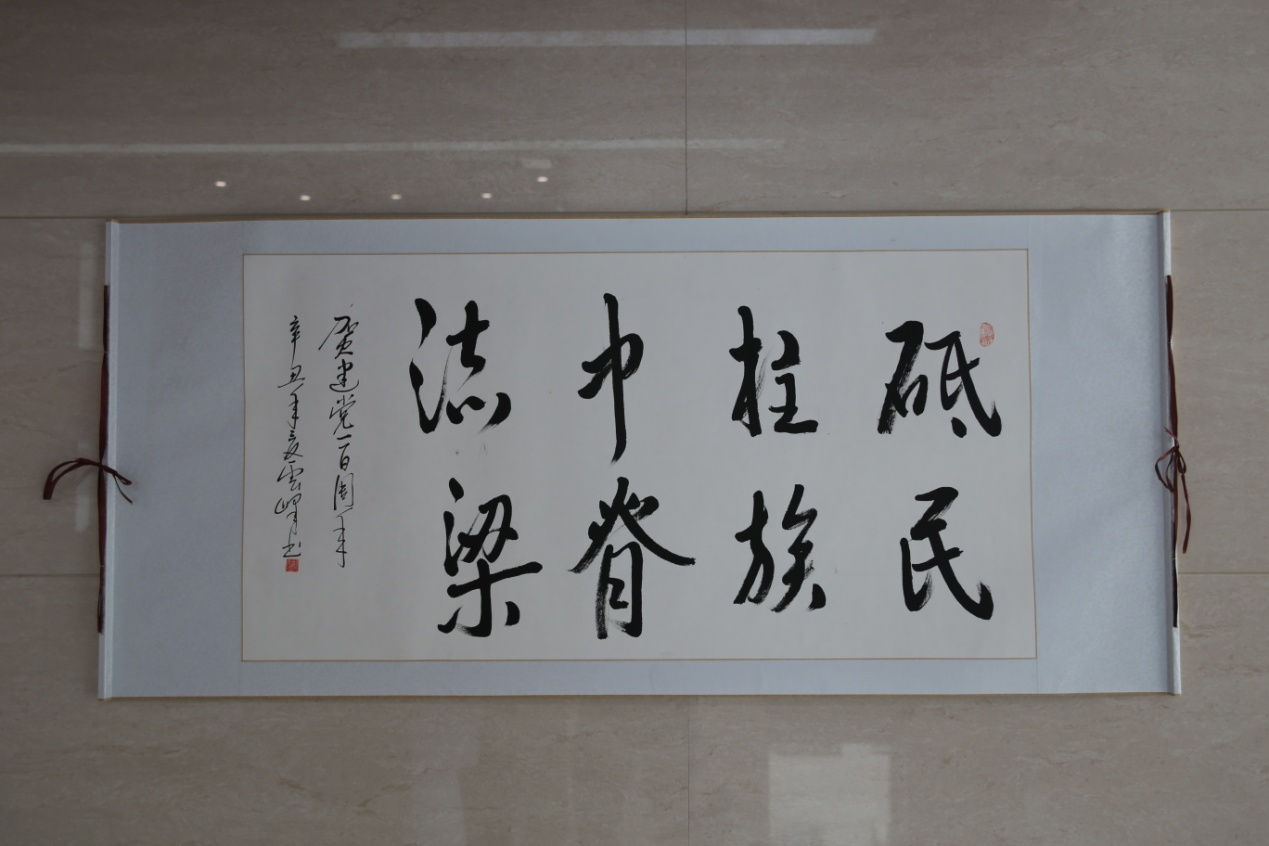 砥柱中流
民族脊梁
慶建党一百周年
辛丑年夏雲书